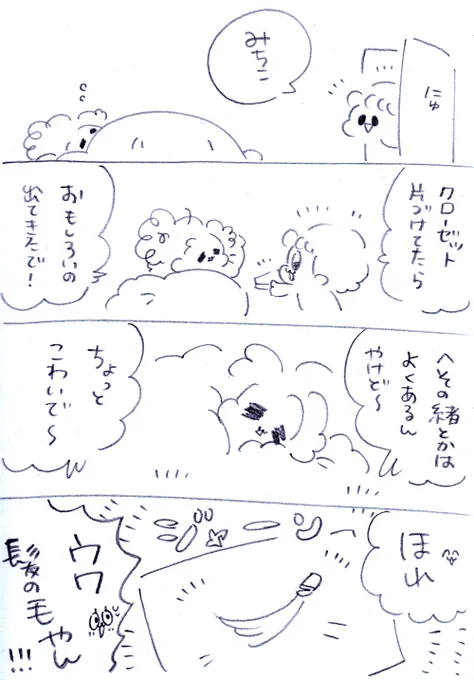 みちこ
にゅ
クローゼット
片づけてたら
おもしろいの
出てきたで！
へその緒とかは
よくあるん
やけど〜
ちょっと
こわいで〜
ほれ
ウワ
髪の毛やん
!!!